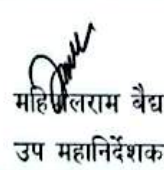 महिपालराम बैद्य
उप महानिर्देशक